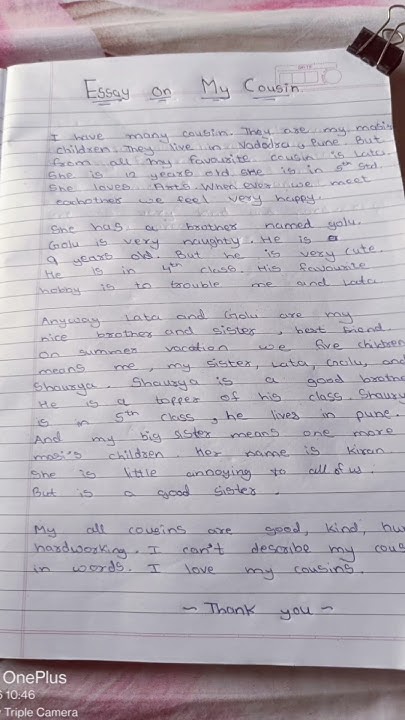 Essay on My Cousin
I have many cousin. They are my masi's
children. They live in Vadodra & Pune. But
from all my favourite cousin is Lata.
She is 12 years old. She is in 5th Std.
She loves Arts. When ever we meet
eachother we feel very happy.
She has a brother named golu.
Golu is very naughty. He is
9 years old. But he is very cute.
He is in 4th class. His favourite
hobby is to trouble me and Lata.
Anyway Lata and Golu are my
nice brother and sister, best friend.
On summer vacation we five children
means me, my sister, Lata, Golu, and
Shaurya. Shaurya is a good brothe
He is a topper of his class. Shaury
is in 5th class, he lives in pune.
And my big sister means one more
masi's children. Her name is Kiran.
She is little annoying to all of us.
But is a good sister.
My all cousins are good, kind, hum
hardworking. I can't describe my cous
in words. I love my cousins.
~ Thank you ~
OnePlus
10:46
Triple Camera